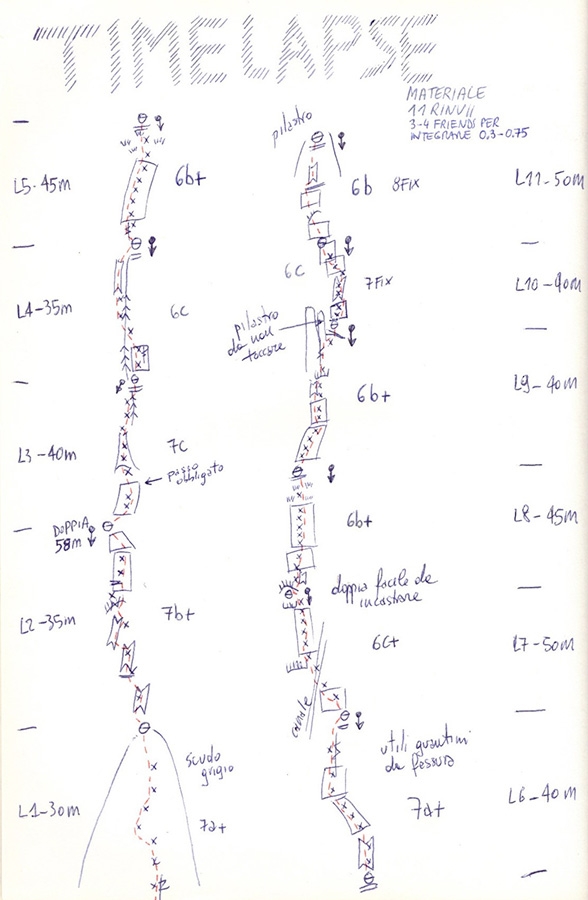 TIMELAPSE
MATERIALE
11 RINVII
3-4 FRIENDS PER
INTEGRARE 0.3-0.75
L5-45m
6b+
L4-35m
6c
L3-40m
7c
passo
obbligato
DOPPIA
58m
L2-35m
7b+
scudo
grigio
L1-30m
7a+
pilastro
6b
8FIX
L11-50m
6c
7FIX
L10-40m
pilastro
da non
toccare
L9-40m
6b+
6b+
L8-45m
doppia facile da
incastrare
6c+
L7-50m
canale
utili guantini
da fessura
7a+
L6-40m